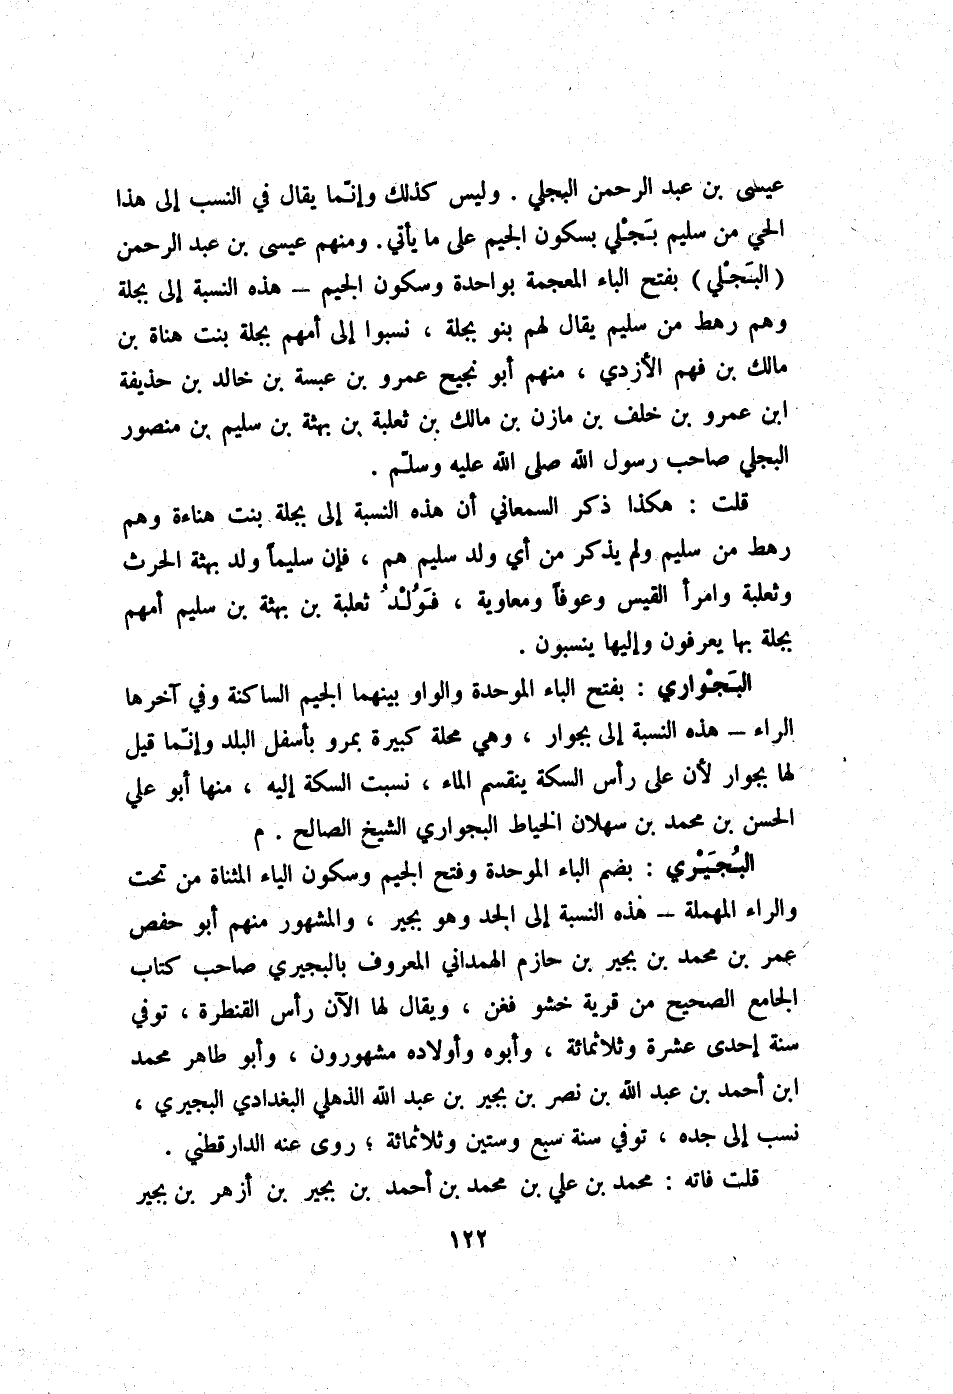 عيسى بن عبد الرحمن البجلي . وليس كذلك وإنّما يقال في النسب إلى هذا
الحي من سليم بَجْلي بسكون الجيم على ما يأتي. ومنهم عيسى بن عبد الرحمن
( البَجْلي ) بفتح الباء المعجمة بواحدة وسكون الجيم – هذه النسبة إلى بجلة
وهم رهط من سليم يقال لهم بنو بجلة ، نسبوا إلى أمهم بجلة بنت هناة بن
مالك بن فهم الأزدي ، منهم أبو نجيح عمرو بن عبسة بن خالد بن حذيفة
ابن عمرو بن خلف بن مازن بن مالك بن ثعلبة بن بهثة بن سليم بن منصور
البجلي صاحب رسول الله صلى الله عليه وسلّم .
قلت : هكذا ذكر السمعاني أن هذه النسبة إلى بجلة بنت هناءة وهم
رهط من سليم ولم يذكر من أي ولد سليم هم ، فإن سليماً ولد بهثة الحرث
وثعلبة وامرأ القيس وعوفاً ومعاوية ، فَوُلْدُ ثعلبة بن بهثة بن سليم أمهم
بجلة بها يعرفون وإليها ينسبون .
البَجْواري : بفتح الباء الموحدة والواو بينهما الجيم الساكنة وفي آخرها
الراء – هذه النسبة إلى بجوار ، وهي محلة كبيرة بمرو بأسفل البلد وإنّما قيل
لها بجوار لأن على رأس السكة ينقسم الماء ، نسبت السكة إليه ، منها أبو علي
الحسن بن محمد بن سهلان الخياط البجواري الشيخ الصالح . م
البُجَيْري : بضم الباء الموحدة وفتح الجيم وسكون الياء المثناة من تحت
والراء المهملة – هذه النسبة إلى الجد وهو بجير ، والمشهور منهم أبو حفص
عمر بن محمد بن بجير بن حازم الهمداني المعروف بالبجيري صاحب كتاب
الجامع الصحيح من قرية خشو فغن ، ويقال لها الآن رأس القنطرة ، توفي
سنة إحدى عشرة وثلاثمائة ، وأبوه وأولاده مشهورون ، وأبو طاهر محمد
ابن أحمد بن عبد الله بن نصر بن بجير بن عبد الله الذهلي البغدادي البجيري ،
نسب إلى جده ، توفي سنة سبع وستين وثلاثمائة ؛ روى عنه الدارقطني .
قلت فاته : محمد بن علي بن محمد بن أحمد بن بجير بن أزهر بن بجير
١٢٢